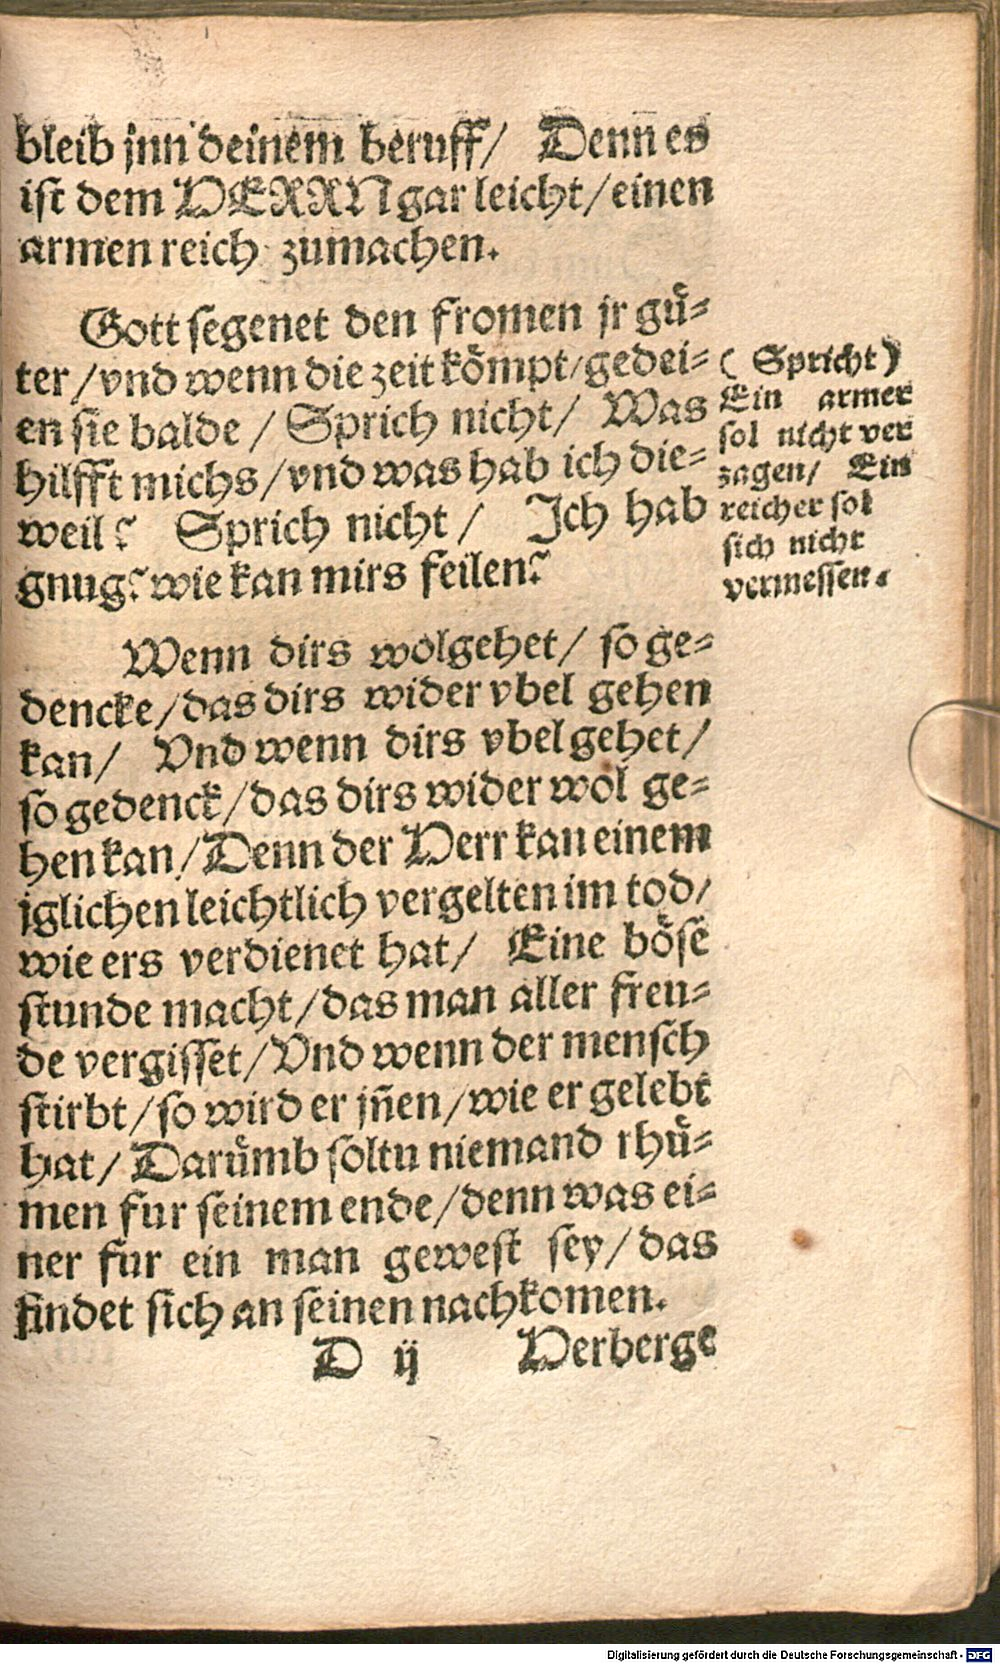 bleib jnn deinem beruff/ Denn es
ist dem HERRN gar leicht/einen
armen reich zumachen.
Gott segenet den fromen jr gü⸗
ter/vnd wenn die zeit kömpt/gedei⸗
en sie balde/ Sprich nicht/ Was
hilfft michs/vnd was hab ich die⸗
weil? Sprich nicht/ Ich hab
gnug? wie kan mirs feilen?
(Spricht)
Ein armer
sol nicht ver
zagen/ Ein
reicher sol
sich nicht
vermessen.
Wenn dirs wolgehet/ so ge⸗
dencke/das dirs wider vbel gehen
kan/ Vnd wenn dirs vbel gehet/
so gedenck/das dirs wider wol ge⸗
hen kan/Denn der Herr kan einem
jglichen leichtlich vergelten im tod/
wie ers verdienet hat/ Eine böse
stunde macht/das man aller freu⸗
de vergisset/Vnd wenn der mensch
stirbt/so wird er jñen/wie er gelebt
hat/ Darümb soltu niemand rhü⸗
men fur seinem ende/denn was ei⸗
ner fur ein man gewest sey/das
findet sich an seinen nachkomen.
D ij Herberge
Digitalisierung gefördert durch die Deutsche Forschungsgemeinschaft - DFG